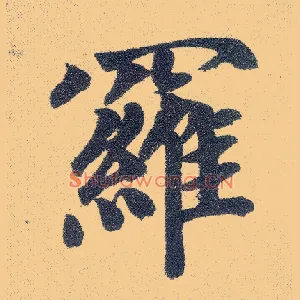 羅
Shufawang.CN